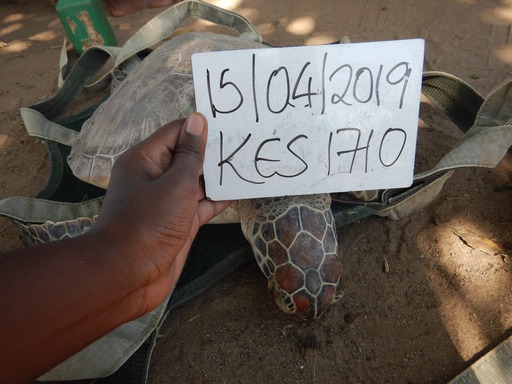 15/04/2019
KES 1710